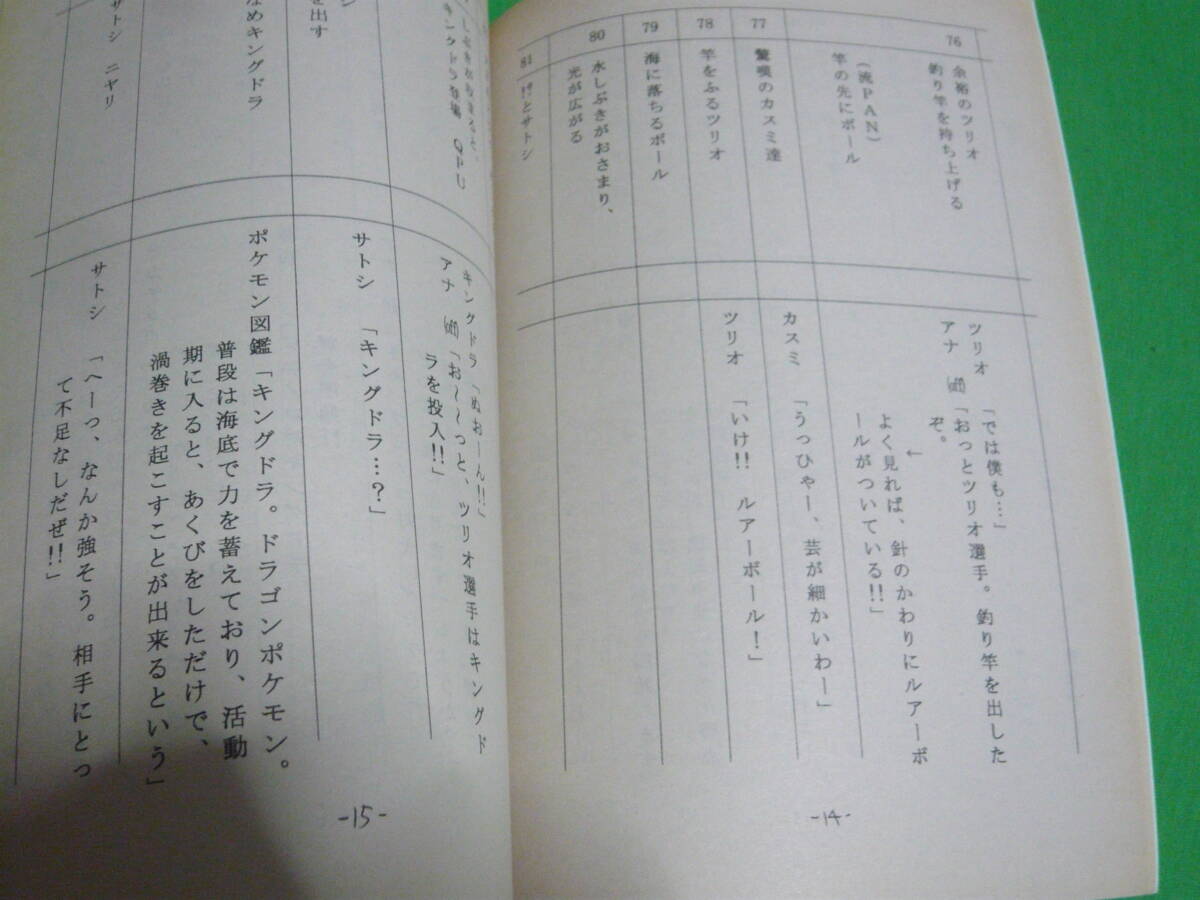 76
余裕のツリオ
釣り竿を持ち上げる
(流PAN)
竿の先にボール
77
驚嘆のカスミ達
78
竿をふるツリオ
79
海に落ちるボール
80
水しぶきがおさまり、
光が広がる
81
!?とサトシ
ツリオ 「では僕も…」
アナ (off)「おっとツリオ選手。釣り竿を出した
ぞ。
↓
よく見れば、針のかわりにルアーボ
ールがついている!!」
カスミ 「うっひゃー、芸が細かいわー」
ツリオ 「いけ!! ルアーボール!」
-14-
キングドラ登場 QPU
を出す
なめキングドラ
サトシ ニヤリ
キングドラ「ぬおーん!!」
アナ (off)「お〜〜っと、ツリオ選手はキングド
ラを投入!!」
サトシ 「キングドラ…?」
ポケモン図鑑「キングドラ。ドラゴンポケモン。
普段は海底で力を蓄えており、活動
期に入ると、あくびをしただけで、
渦巻きを起こすことが出来るという」
サトシ 「へーっ、なんか強そう。相手にとっ
て不足なしだぜ!!」
-15-